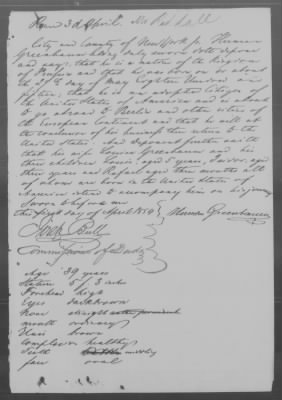 City and County of New York Ss: Herman
Greenbaum being duly sworn doth depose
and says, that he is a native of the Kingdom
of Prussia and that he was born on or about
the day of May Eighteen Hundred and
fifteen, that he is an adopted Citizen of
the United States of America and is about
to go abroad to Berlin and other cities of
the European Continent and that he will at
the conclusion of his business there return to the
United States. And deponent further saith
that his wife Louise Greenbaum and his
three children Louis aged 5 years, Isidor aged
three years and Rafael aged three months all
of whom are born in the United States of
America intend to accompany him on his journey
Sworn to before me
this first day of April 1854 Herman Greenbaum
Bull
Commissioner of Deeds
Age 39 years
Stature 5/3 inches
Forehead high
Eyes dark brown
Nose straight
mouth ordinary
Hair brown
Complexion healthy
face oval